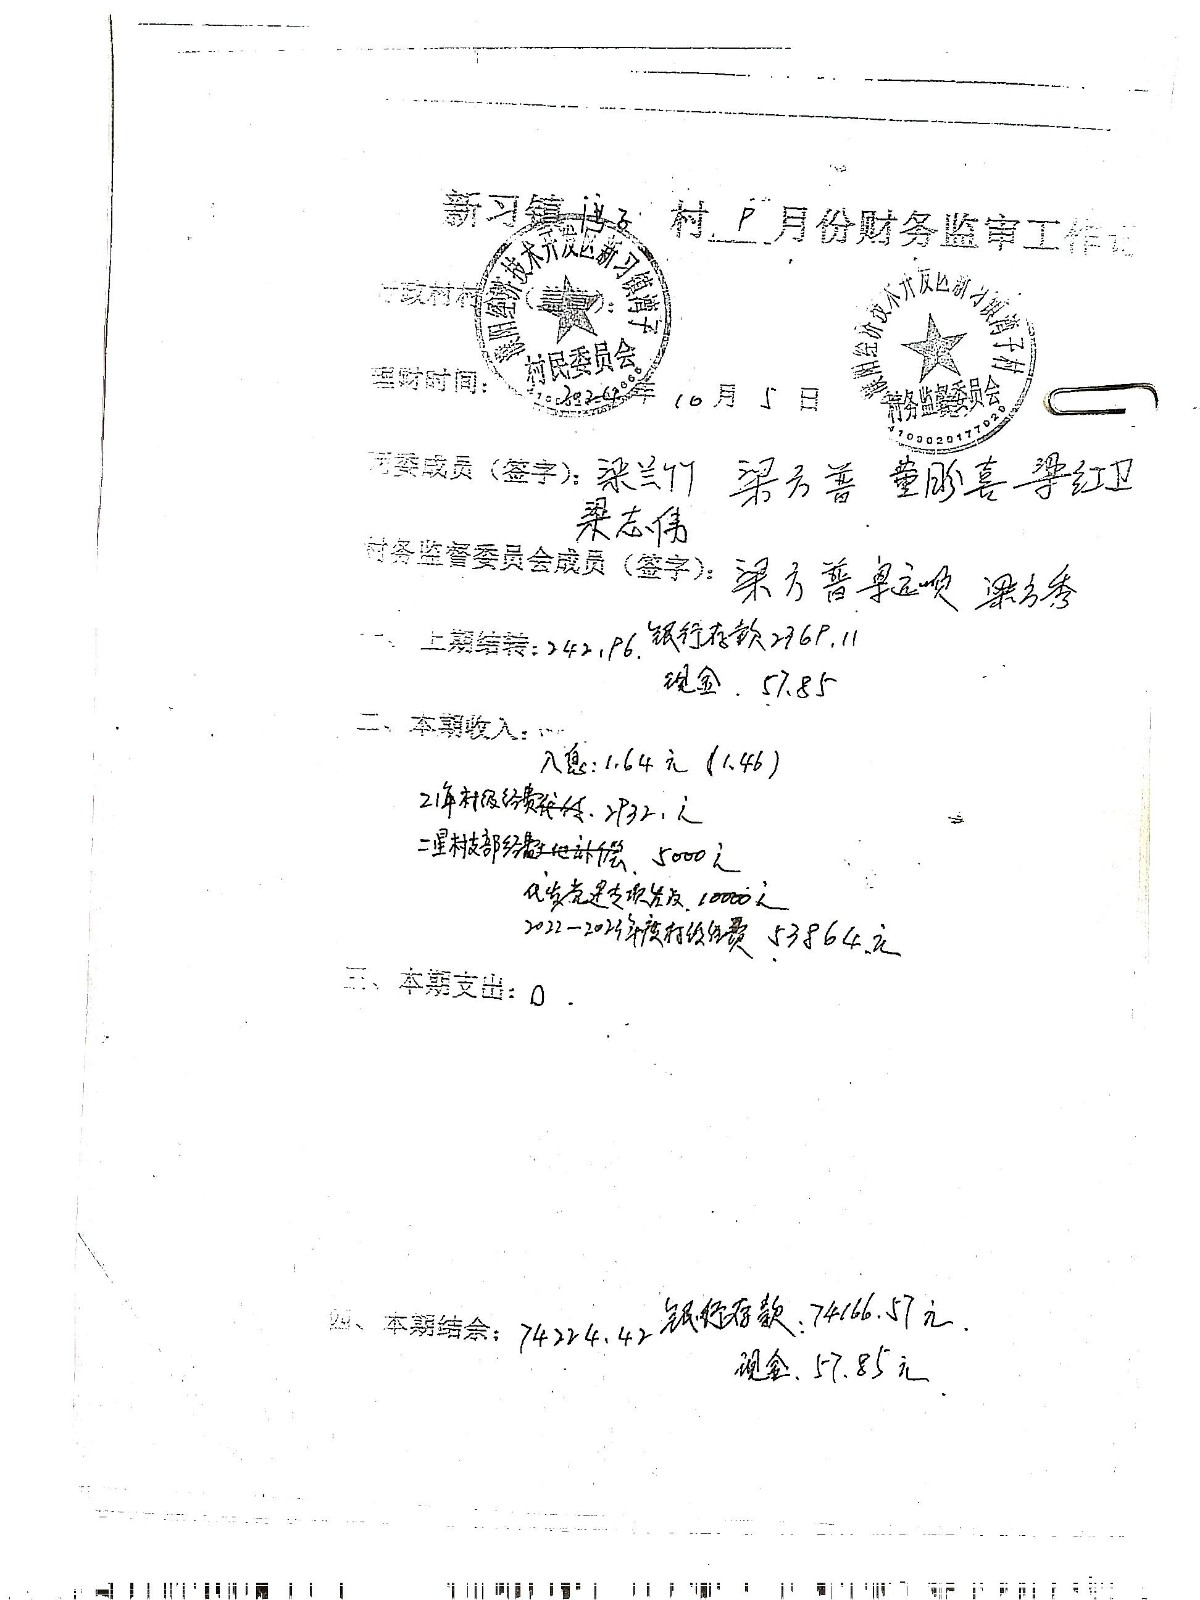 新习镇 湾子 村 9 月份财务监审工作记
行政村村 (盖章):
濮阳经济技术开发区新习镇湾子
村民委员会
濮阳经济技术开发区新习镇湾子村
村务监督委员会
4100020177020
理财时间: 2024年 10月 5日
两委成员(签字): 梁兰竹 梁方普 董彤喜 梁红卫
梁志伟
村务监督委员会成员(签字): 梁方普 梁方秀
一、上期结转: 242.96. 银行存款2369.11
现金. 57.85
二、本期收入:
入息: 1.64元 (1.46)
21年村级经费 2932.元
二星村支部经费 5000元
党建专项 10000元
2022-2024年度村级经费 53864.元
三、本期支出: 0.
四、本期结余: 74224.42 银行存款: 74166.57元.
现金. 57.85元